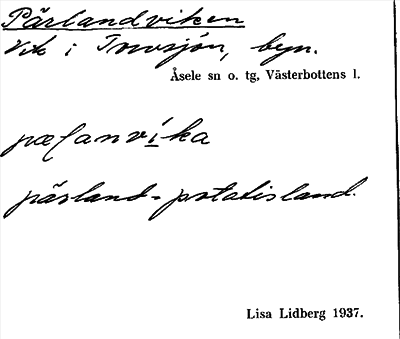 Pärlandviken
Vik i Torvsjön, byn.
Åsele sn o. tg, Västerbottens l.
pæɭanvika
pärland = potatisland.
Lisa Lidberg 1937.